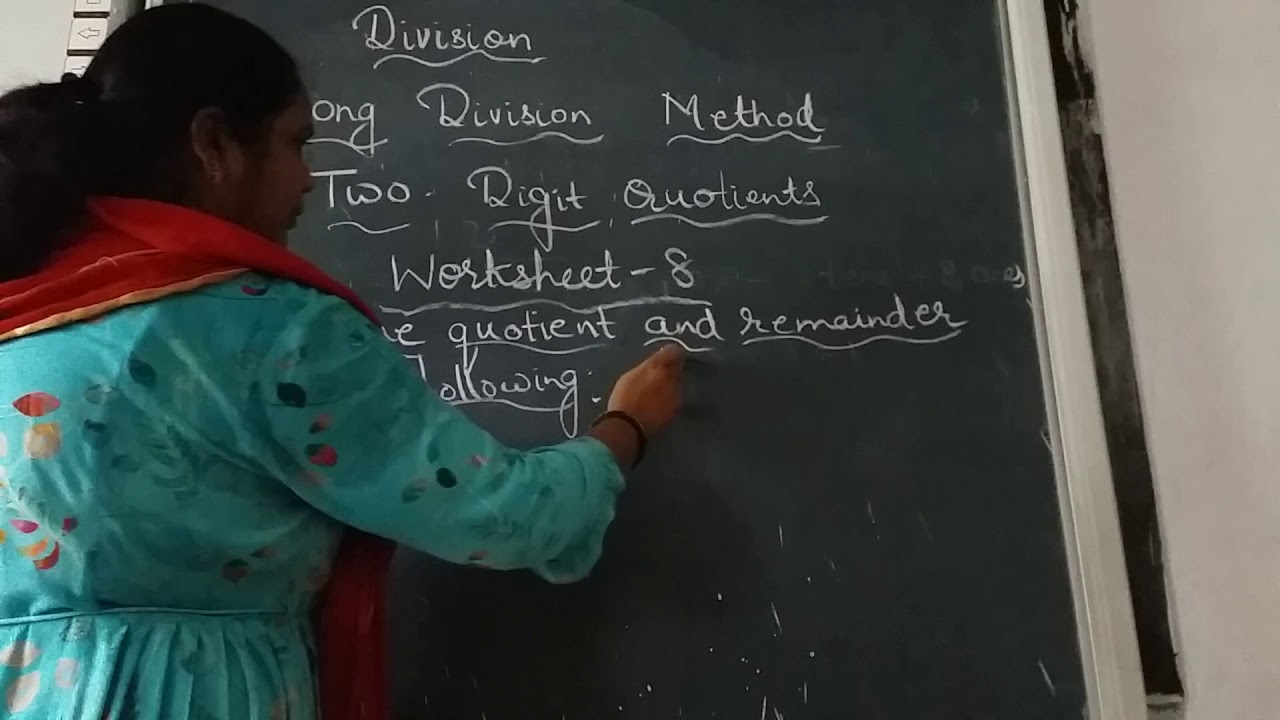 Division
ong Division Method
Two Digit Quotients
Worksheet - 8
e quotient and remainder
ollowing: